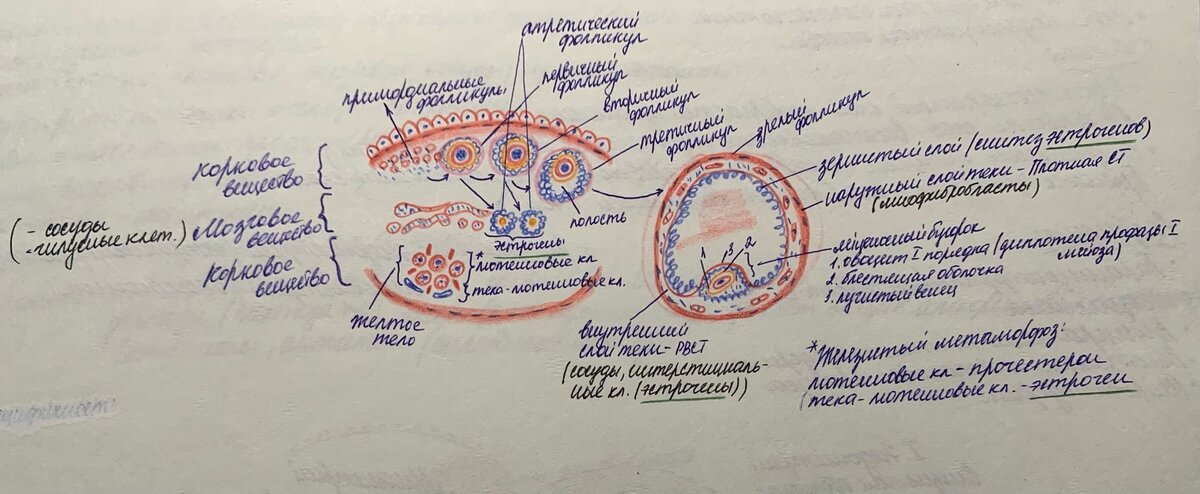 атретический
фолликул
примордиальные
фолликулы
первичный
фолликул
вторичный
фолликул
третичный
фолликул
зрелый
фолликул
корковое
вещество
(- сосуды
- хилусные клет.)
Мозговое
вещество
корковое
вещество
эстрогены
* лютеиновые кл
тека-лютеиновые кл.
желтое
тело
полость
зернистый слой (синтез эстрогенов)
наружный слой теки - Плотная СТ
(миофибробласты)
яйценосный бугорок
1. овоцит I порядка (диплотена профазы I
мейоза)
2. блестящая оболочка
3. лучистый венец
1 3 2
внутренний
слой теки - РВСТ
(сосуды, интерстициаль-
ные кл. (эстрогены))
*Железистый метаморфоз:
лютеиновые кл - прогестерон
(тека-лютеиновые кл. - эстроген